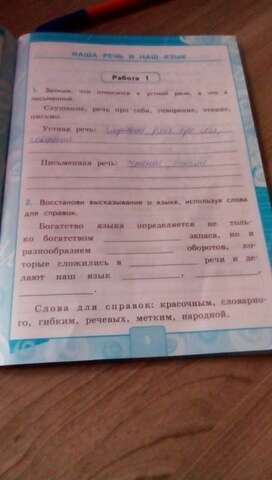 НАША РЕЧЬ И НАШ ЯЗЫК
Работа 1
1. Запиши, что относится к устной речи, а что к
письменной.
Слушание, речь про себя, говорение, чтение,
письмо.
Устная речь: слушание, речь про себя,
говорение
Письменная речь: чтение, письмо
2. Восстанови высказывание о языке, используя слова
для справок.
Богатство языка определяется не толь-
ко богатством ___ запаса, но и
разнообразием ___ оборотов, ко-
торые сложились в ___ речи и де-
лают наш язык ___, ___,
___.
Слова для справок: красочным, словарно-
го, гибким, речевых, метким, народной.